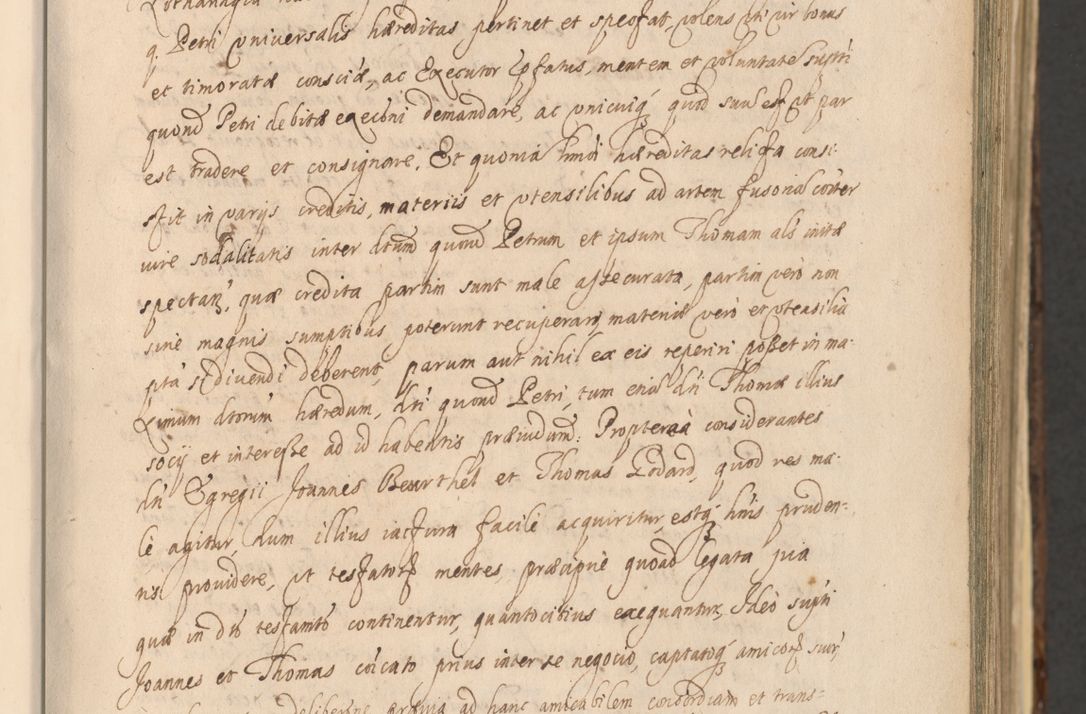 Lotharingia
q. Petri vniversalis hæreditas pertinet et spectat, volens vti vir bonus
et timoratæ consciæ, ac Executor ipsatus, mentem et voluntatē supti
quond Petri debitæ execōni demandare, ac vnicuiq quod suū est vt par
est tradere et consignare. Et quonia hmōi hæreditas relicta consi-
stit in varijs creditis, materiis et vtensilibus ad artem fusoriā coiter
iure sodalitatis inter dtum quond Petrum et ipsum Thomam als initæ
spectan, quæ credita partim sunt male assecurata, partim vero non
sine magnis sumptibus poterunt recuperari materiæ vero et vtensilia
pta si divendi deberent, parum aut nihil ex eis reperiri posset in ma-
ximum dtorum hæredum, dti quond Petri, tum eniā dni Thomæ illius
socij et interesse ad id habentis præiudium. Propterea considerantes
dni Egregii Joannes Beurthel et Thomas Lodard, quod res ma-
le agitur, dum illius iactura facile acquiritur, estq huis pruden-
tis providere, vt testator mentes, præcipue quoad legata pia
quæ in dto testamto continentur, quantocitius exequantur, Ideo supti
Joannes et Thomas coicato prius inter se negocio, captatoq amicor suor
deliberōne prævia ad hanc amicabilem concordiam et trans-